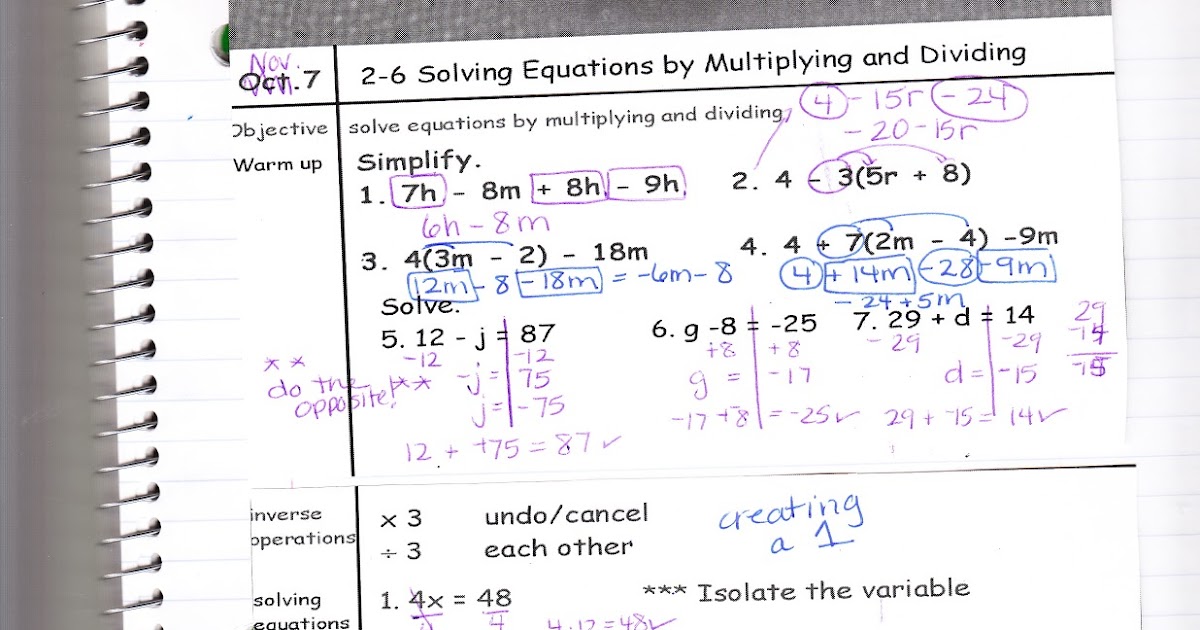 Nov.
Oct. 7 2-6 Solving Equations by Multiplying and Dividing
Objective solve equations by multiplying and dividing
4 - 15r - 24
- 20 - 15r
Warm up Simplify.
1. 7h - 8m + 8h - 9h 2. 4 - 3(5r + 8)
6h - 8m
3. 4(3m - 2) - 18m 4. 4 + 7(2m - 4) -9m
12m - 8 - 18m = -6m - 8 4 + 14m - 28 - 9m
- 24 + 5m
Solve.
5. 12 - j = 87 6. g -8 = -25 7. 29 + d = 14
-12 -12 +8 +8 - 29 -29
-j = 75 g = -17 d = -15
j = -75 -17 + -8 = -25 ✓ 29 + -15 = 14 ✓
12 + +75 = 87 ✓
29
** do the
opposite! **
inverse × 3 undo/cancel creating
operations ÷ 3 each other a 1
solving 1. 4x = 48 *** Isolate the variable
equations 4 4·12=48 ✓